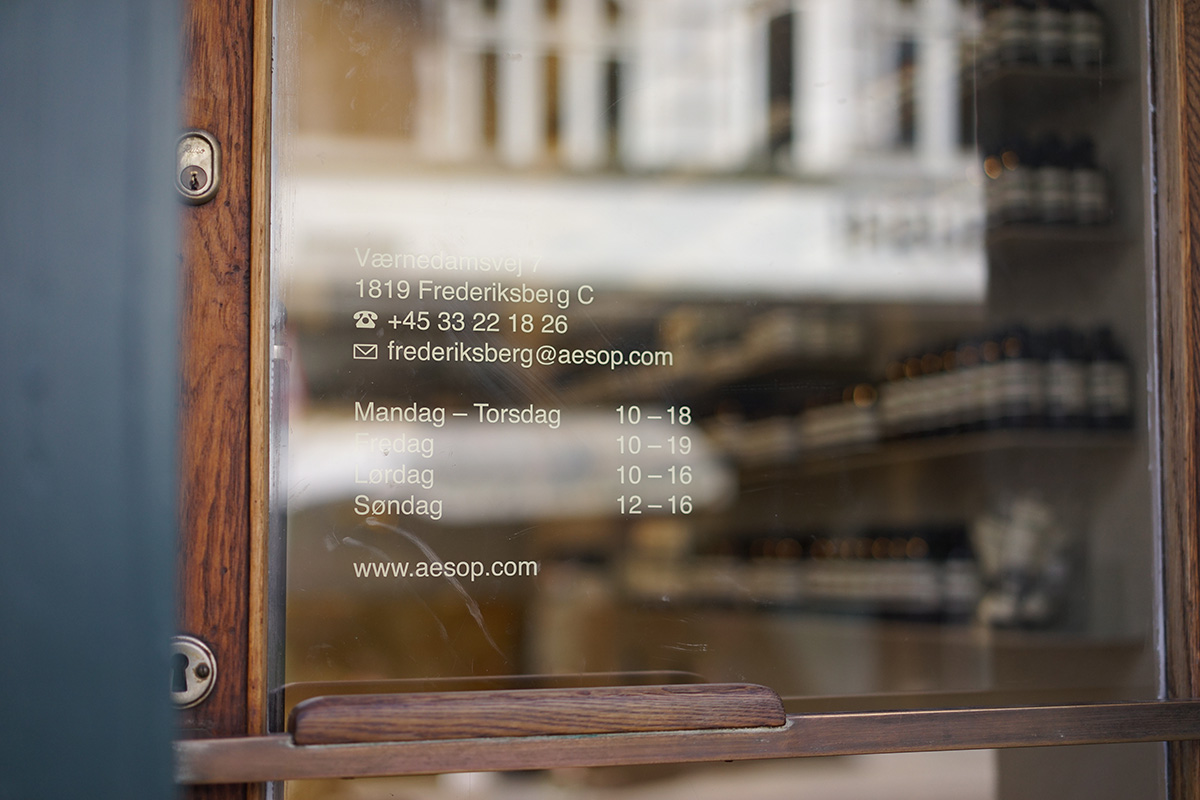 Værnedamsvej 7
1819 Frederiksberg C
☎ +45 33 22 18 26
✉ frederiksberg@aesop.com
Mandag – Torsdag 10 – 18
Fredag 10 – 19
Lørdag 10 – 16
Søndag 12 – 16
www.aesop.com